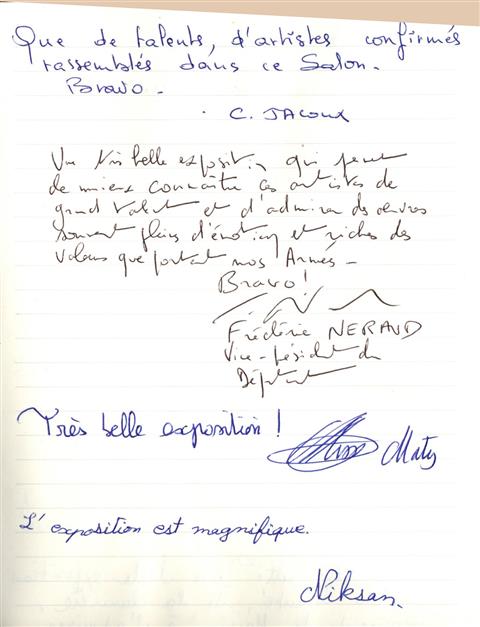 Que de talents, d'artistes confirmés
rassemblés dans ce Salon.
Bravo.
C. JACOUX
Une très belle exposition, qui permet
de mieux connaître ces artistes de
grand talent et d'admirer des œuvres
souvent pleins d'émotion et riches des
valeurs que portent nos Armées -
Bravo !
Frédéric NERAUD
Vice-président du
Départ
Très belle exposition !
Maty
L'exposition est magnifique.
Niksan.